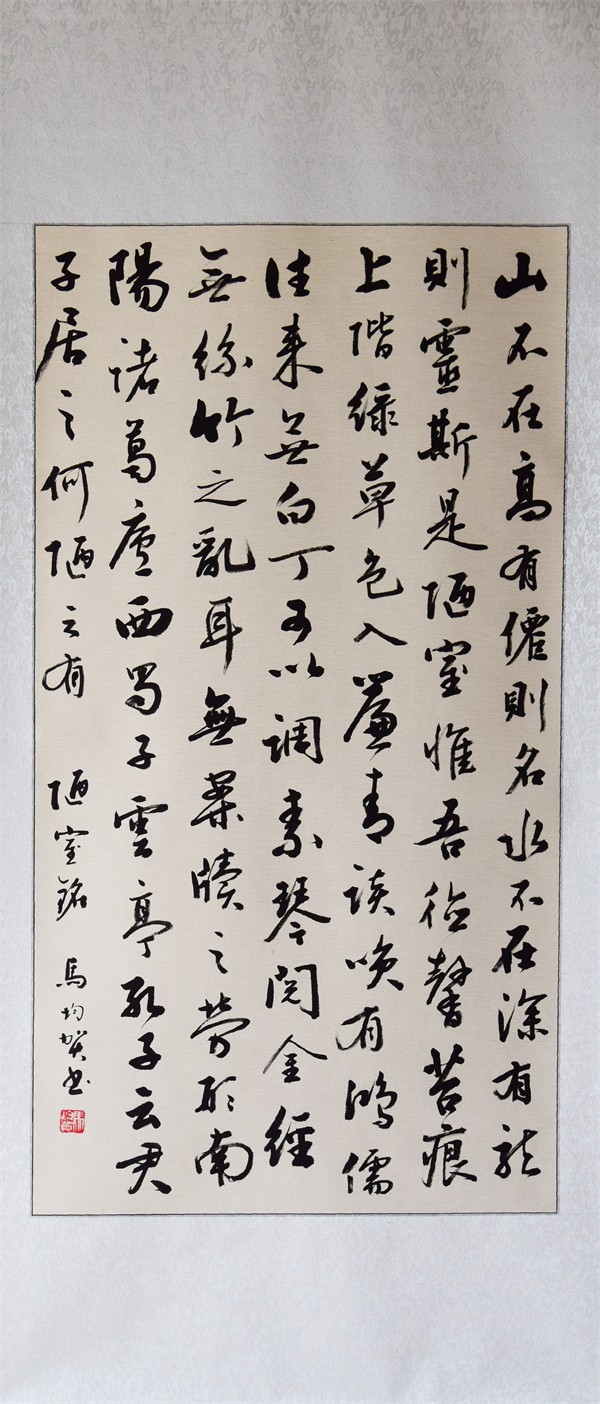 山不在高有僊則名水不在深有龍
則靈斯是陋室惟吾德馨苔痕
上階緑草色入簾青談咲有鴻儒
往来無白丁可以調素琴閲金經
無絲竹之亂耳無案牘之勞形南
陽諸葛廬西蜀子雲亭孔子云君
子居之何陋之有 陋室銘 馬均贺书